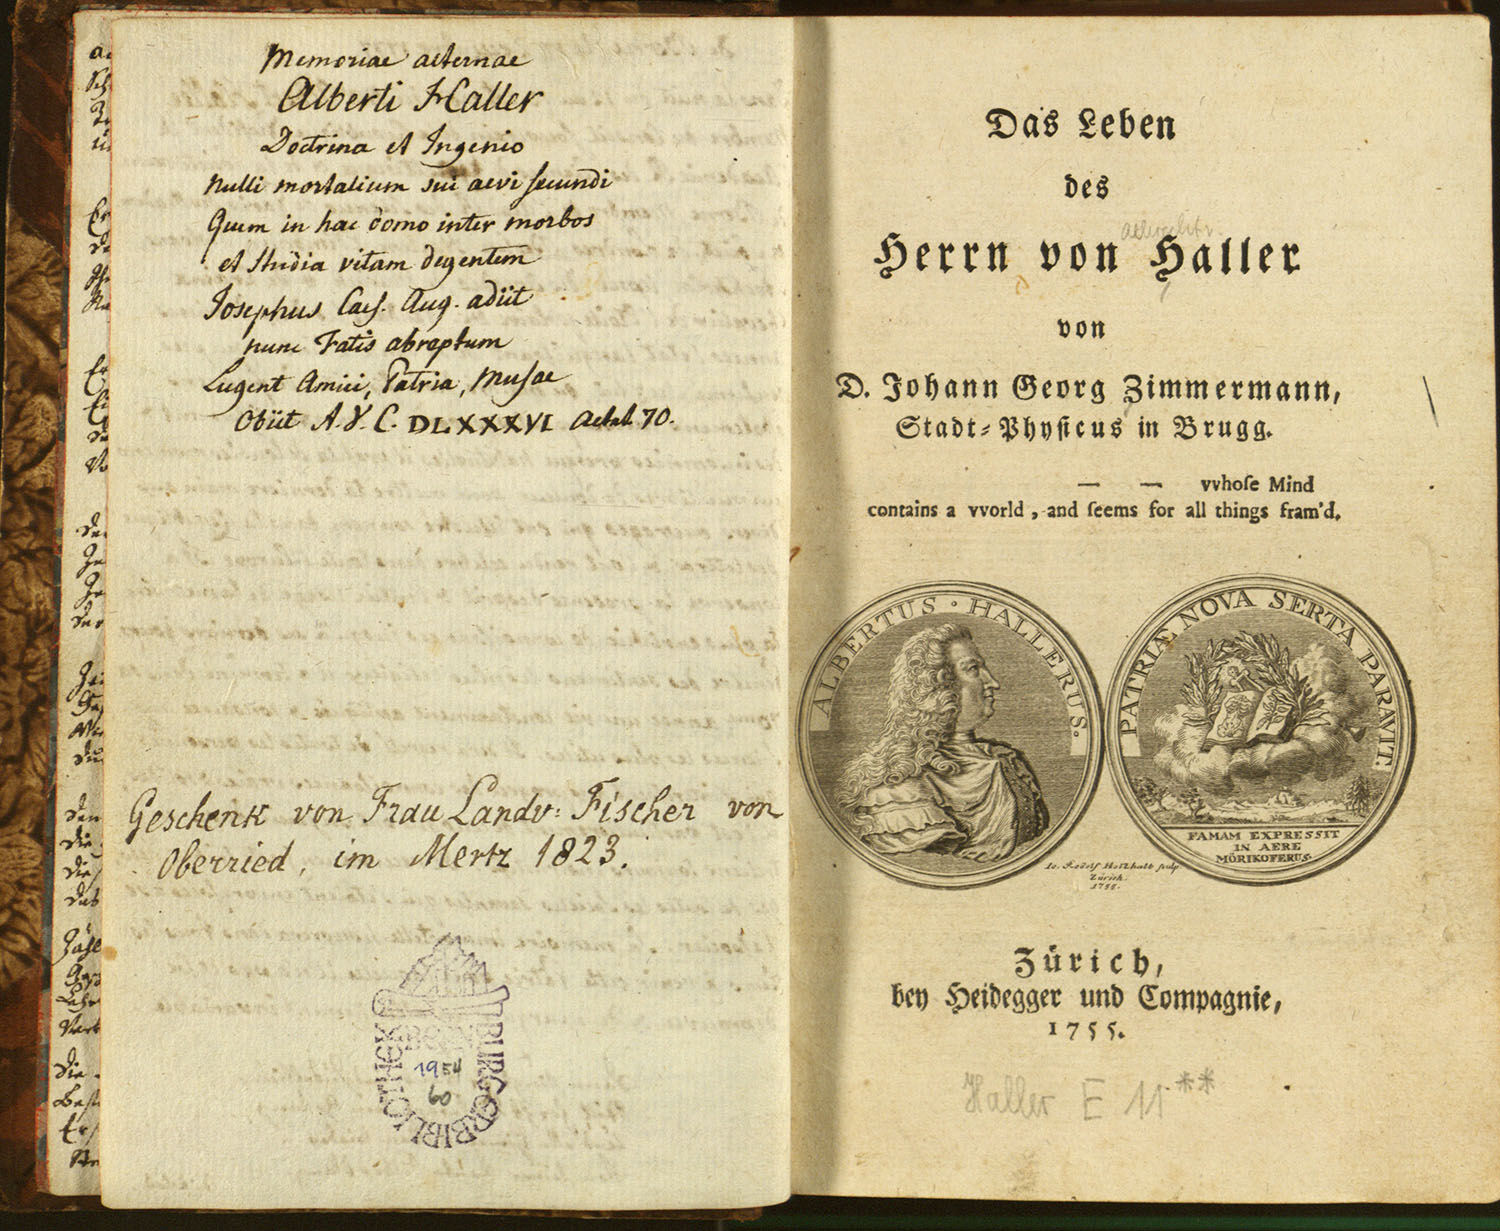 Memoriae aeternae
Alberti Haller
Doctrina et Ingenio
Nulli mortalium sui aevi secundi
Quem in hac domo inter morbos
et Studia vitam degentem
Josephus Caes. Aug. adiit
nunc Fatis abreptum
Lugent Amici, Patria, Musae
Obiit A. V. C. DLXXXVI aetat. 70.
Geschenk von Frau Landv: Fischer von
Oberried, im Mertz 1823.
BIBLIOTHEK BURGERBIBLIOTHEK
1954
60
Das Leben
des
Herrn von Haller
von
D. Johann Georg Zimmermann,
Stadt-Physicus in Brugg.
— — vvhoſe Mind
contains a vvorld, and ſeems for all things fram'd.
ALBERTUS · HALLERUS.
PATRIÆ NOVA SERTA PARAVIT.
FAMAM EXPRESSIT
IN AERE
MÖRIKOFERUS.
Io. Rodolf Holzhalb sculp
Zürich.
1755.
Zürich,
bey Heidegger und Compagnie,
1755.
Haller E 11**